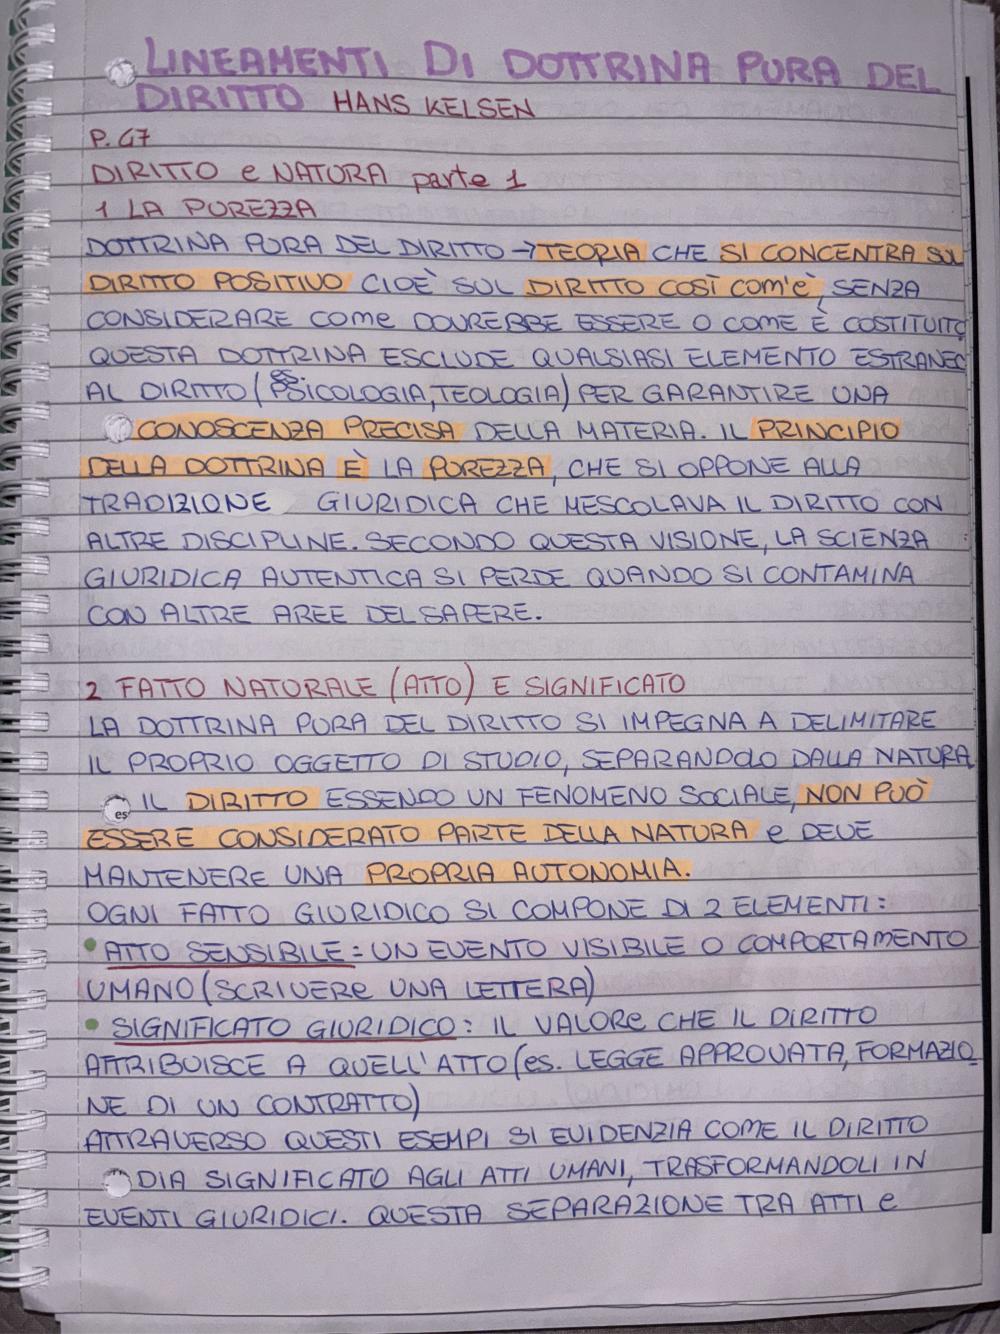 LINEAMENTI DI DOTTRINA PURA DEL
DIRITTO HANS KELSEN
P. 47
DIRITTO e NATURA parte 1
1 LA PUREZZA
DOTTRINA PURA DEL DIRITTO → TEORIA CHE SI CONCENTRA SUL
DIRITTO POSITIVO CIOÈ SUL DIRITTO COSÌ COM'È, SENZA
CONSIDERARE COME DOVREBBE ESSERE O COME È COSTITUITO
QUESTA DOTTRINA ESCLUDE QUALSIASI ELEMENTO ESTRANEO
AL DIRITTO (PSICOLOGIA, TEOLOGIA) PER GARANTIRE UNA
CONOSCENZA PRECISA DELLA MATERIA. IL PRINCIPIO
DELLA DOTTRINA È LA PUREZZA, CHE SI OPPONE ALLA
TRADIZIONE GIURIDICA CHE MESCOLAVA IL DIRITTO CON
ALTRE DISCIPLINE. SECONDO QUESTA VISIONE, LA SCIENZA
GIURIDICA AUTENTICA SI PERDE QUANDO SI CONTAMINA
CON ALTRE AREE DEL SAPERE.
2 FATTO NATURALE (ATTO) E SIGNIFICATO
LA DOTTRINA PURA DEL DIRITTO SI IMPEGNA A DELIMITARE
IL PROPRIO OGGETTO DI STUDIO, SEPARANDOLO DALLA NATURA
IL DIRITTO ESSENDO UN FENOMENO SOCIALE, NON PUÒ
ESSERE CONSIDERATO PARTE DELLA NATURA e DEVE
MANTENERE UNA PROPRIA AUTONOMIA.
OGNI FATTO GIURIDICO SI COMPONE DI 2 ELEMENTI:
• ATTO SENSIBILE = UN EVENTO VISIBILE O COMPORTAMENTO
UMANO (SCRIVERE UNA LETTERA)
• SIGNIFICATO GIURIDICO: IL VALORE CHE IL DIRITTO
ATTRIBUISCE A QUELL'ATTO (es. LEGGE APPROVATA, FORMAZIO
NE DI UN CONTRATTO)
ATTRAVERSO QUESTI ESEMPI SI EVIDENZIA COME IL DIRITTO
DIA SIGNIFICATO AGLI ATTI UMANI, TRASFORMANDOLI IN
EVENTI GIURIDICI. QUESTA SEPARAZIONE TRA ATTI e